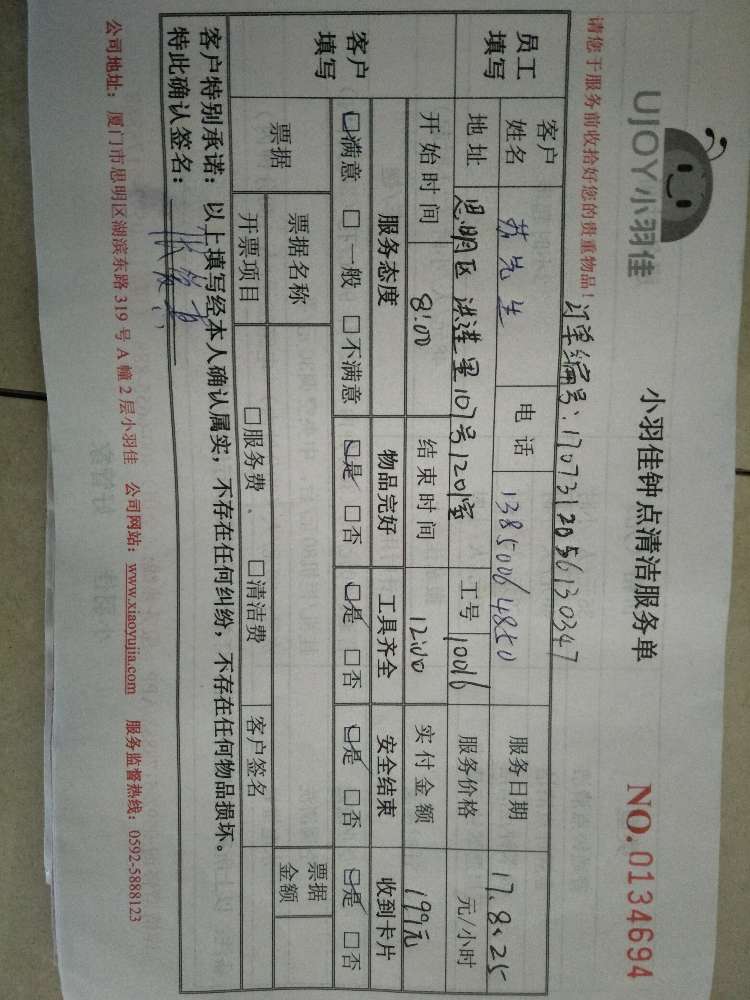 UJOY小羽佳
小羽佳钟点清洁服务单
NO.0134694
请您于服务前收拾好您的贵重物品！
订单编号：1707312056130347
员工填写
客户姓名 先生 电话 13850064850 服务日期 17.8.25
地址 思明区 莲里107号1201室 工号 10016 服务价格 元/小时
开始时间 8:00 结束时间 12:00 实付金额 199元
客户填写
服务态度 物品完好 工具齐全 安全结束 收到卡片
☑满意 □一般 □不满意 ☑是 □否 ☑是 □否 ☑是 □否 ☑是 □否
票据 票据名称 票据金额
开票项目 □服务费 □清洁费 客户签名
客户特别承诺：以上填写经本人确认属实，不存在任何纠纷，不存在任何物品损坏。
特此确认签名：
公司地址：厦门市思明区湖滨东路319号A幢2层小羽佳 公司网站：www.xiaoyujia.com 服务监督热线：0592-5888123